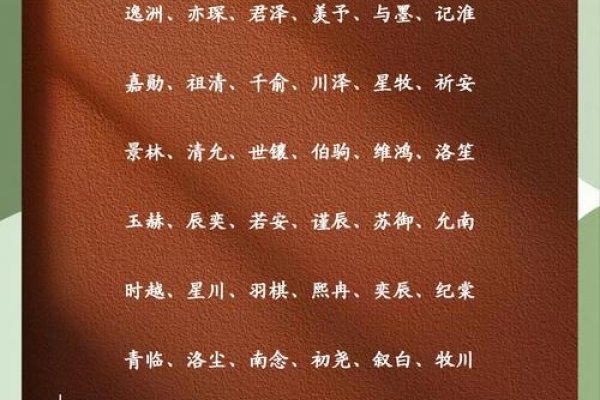 逸洲、亦琛、君泽、羡予、与墨、记淮
嘉勋、祖清、千俞、川泽、星牧、祈安
景林、清允、世镶、伯驹、维鸿、洛笙
玉赫、辰奕、若安、谨辰、苏御、允南
时越、星川、羽棋、熙冉、奕辰、纪棠
青临、洛尘、南念、初尧、叙白、牧川